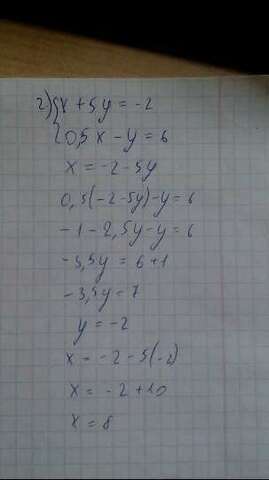 2) { x + 5y = -2
0,5x - y = 6
x = -2 - 5y
0,5(-2 - 5y) - y = 6
-1 - 2,5y - y = 6
-3,5y = 6 + 1
-3,5y = 7
y = -2
x = -2 - 5(-2)
x = -2 + 10
x = 8